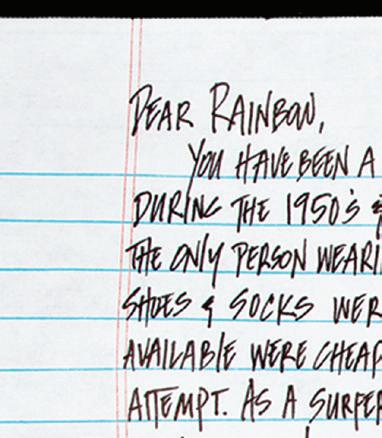 DEAR RAINBOW,
YOU HAVE BEEN A
DURING THE 1950'S &
THE ONLY PERSON WEARI
SHOES & SOCKS WER
AVAILABLE WERE CHEAP
ATTEMPT. AS A SURFER